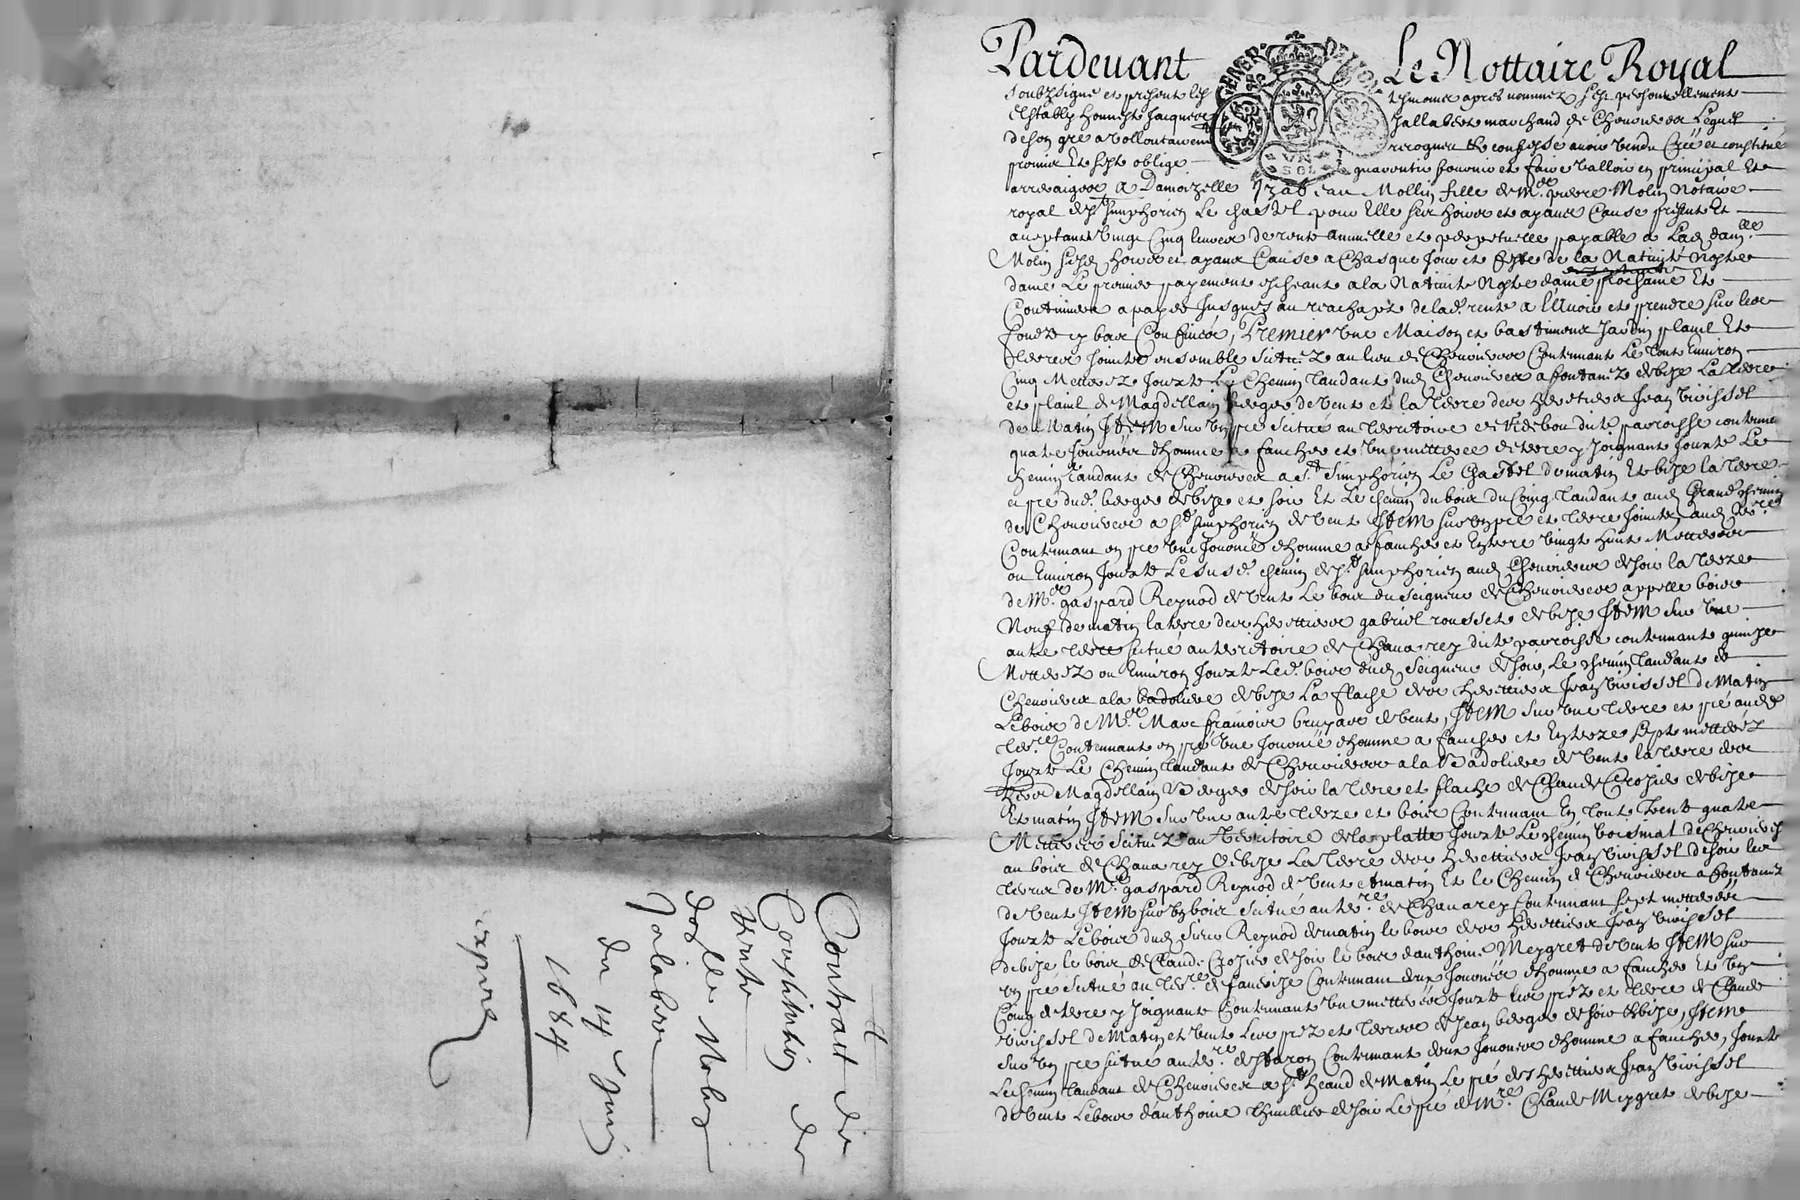 Contract de
Constitution de
rente
dozlle Molin
Jalabert
du 14 Juin
1684
expedie
Pardeuant Le Nottaire Royal
soubzsigné et presents les tesmoins apres nommez s'est personnellement
Estably honneste Jacques Jallabert marchand de Chenouieres Lequel
de son gré a vollontairement recogneu & confessé auoir Vendu Créé et constitué
promis Et s'est obligé garantir fournir et faire Valloir en principal Et
arreraiges A Damoizelle Yzabeau Mollin fille de Mre pierre Molin Notaire
royal de St Simphorien Le chastel pour Elle ses hoirs et ayants Cause presente Et
acceptante Vingt Cinq liures de rente Annuelle et perpetuelle payable a Lad. damlle
Molin ses hoirs et ayant Cause a Chasque Jour et feste de la Natiuité Nostre
dame Le premier payement escheant a la Natiuité Nostre dame prochaine Et
Continuer a payer Jusques au reachapt de lad. rente a l'Auoir et prendre sur les
fondz cy bas Confinés, Premier Vne Maison et bastiments Jardin plassl Et
terres Jointes ensemble scituéz au lieu de Chenouieres Contenant Le tout Enuiron
Cinq Metterez Jouxte Le Chemin tandant dud. Chenouieres a fontanez de bize La terre
et plassl de Magdellain berger de Vent et la terre des heretiers Jean Voissel
de Matin Item sur Vn pré scitué au territoire de dite parroisse contenant
quatre Journées d'homme a faucher et Vne metterée de terre y Joignant Jouxte Le
chemin tandant de Chenouieres a St Simphorien Le Chastel de matin Et bize la terre
et pré dud. berger de bize et soir Et Le chemin du boix du Coing tandant aud. Grand chemin
de Chenouieres a St Simphorien de Vent Item sur Vn pré et terre Joints aud. terre
Contenant en pré Vne Journée d'homme a faucher et En terre Vingt huit Metterées
ou Enuiron Jouxte Le susd. chemin de St Simphorien aud. Chenouieres de soir la terre
de Mre gaspard Reynod de Vent Le boix du Seigneur de Chenouieres appellé boix
Neuf de matin la terre des heretiers gabriel rousset de bize Item sur Vne
autre terre scitué au territoire de Chanarey dite parroisse contenant quinze
Metterez ou Enuiron Jouxte Led. boix dud. Seigneur de soir, Le chemin tandant de
Chenouieres a la badoliere de bize La flache des heretiers Jean Voissel de Matin
Le boix de Mre Marc françois bruyas de Vent, Item sur Vne terre et pré aud.
terre Contenant en pré Vne Journée d'homme a faucher et En terre sept metterez
Jouxte Le Chemin tandant de Chenouieres a la Badoliere de Vent la terre des
hers Magdellain Berger de soir la terre et flache de Claude Crozier de bize
Et matin Item sur Vne autre terre et boix Contenant En tout Trente quatre
Metterées scituéz au Territoire de la platte Jouxte Le chemin de Chenouieres
au boix de Chanarey de bize La terre des heretiers Jean Voissel de soir les
terres de Mre gaspard Reynod de Vent et matin Et le Chemin de Chenouieres a fontanez
de Vent Item sur Vn boix scitué au terre de Chanarey Contenant sept metterées
Jouxte Le boix dud. Sieur Reynod de matin le boix des heretiers Jean Voissel
de bize le boix de Claude Crozier de soir le boix d'anthoine Meygret de Vent Item sur
Vn pré scitué au terre de Contenant deux Journées d'homme a faucher Et Vn
Coing de terre y Joignant Contenant Vne metterée Jouxte les préz et terre de Claude
Voissel de Matin et Vent Les préz et terres de Jean berger de soir & bize, Item
sur Vn pré scitué au terre de Contenant deux Journées d'homme a faucher, Jouxte
Le chemin tandant de Chenouieres a St heand de Matin Le pré des heretiers Jean Voissel
de Vent Le boix d'anthoine de soir Le pré de Mre Claude Meygret de bize